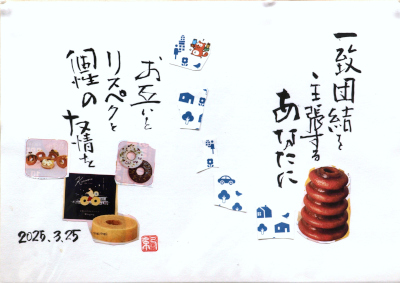 一致団結を
主張する
あなたに
お互いと
リスペクと
個性の
友情を
2025.3.25